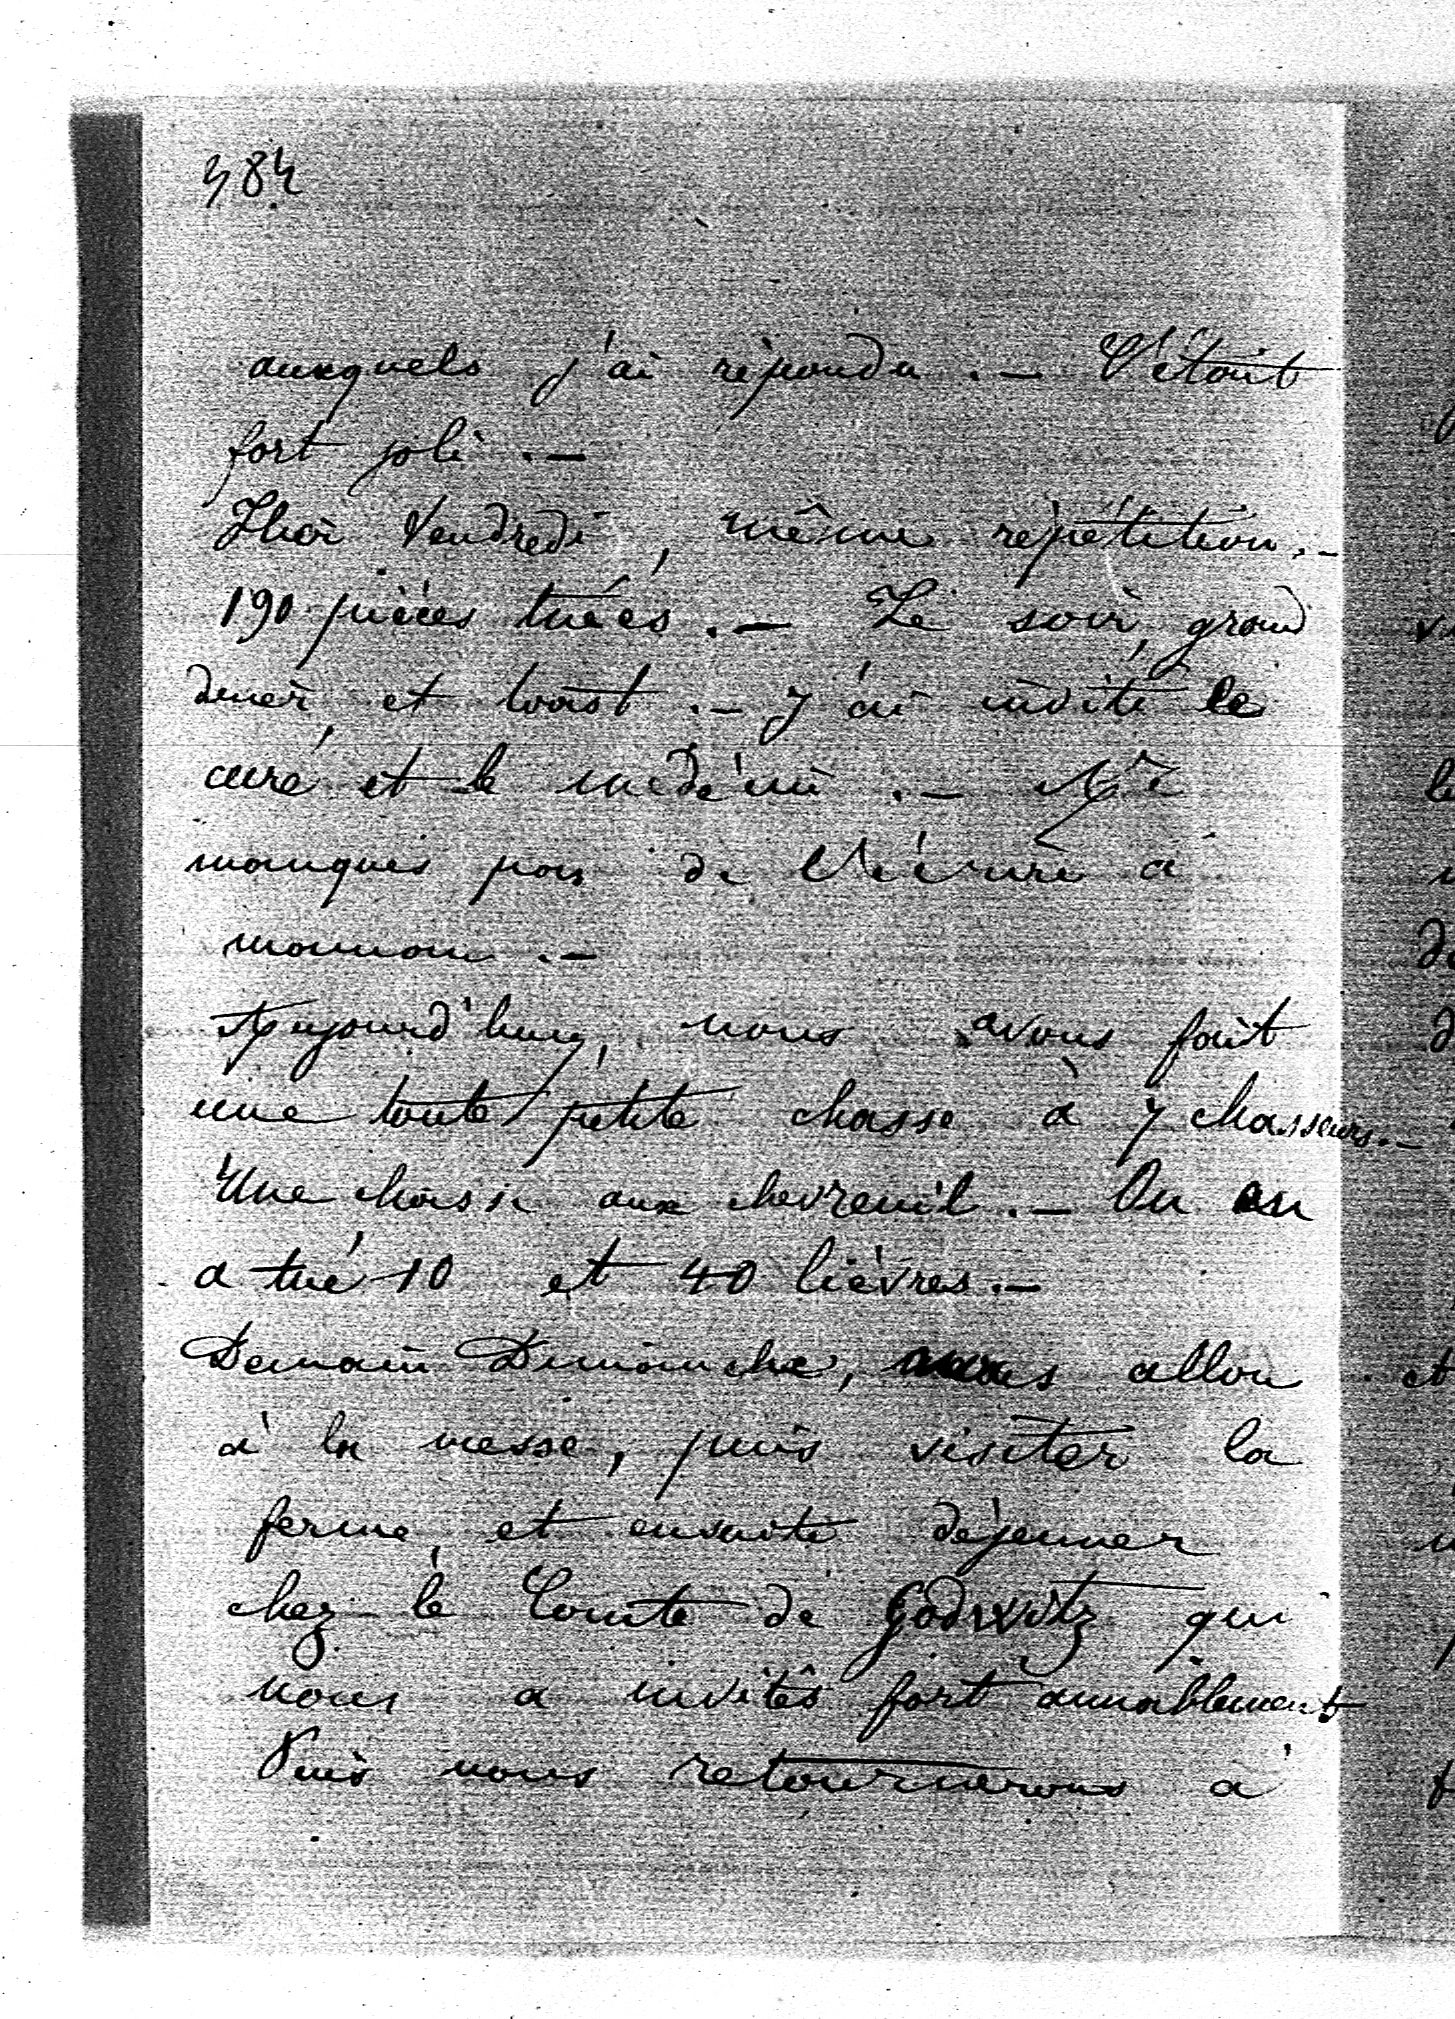 484
auxquels j'ai répondu. — C'était
fort joli. —
Hier Vendredi, même répétition. –
190 pièces tuées. — Le soir, grand
diner, et toast. — J'ai invité le
curé et le médecin. — Ne
manques pas de l'écrire à
maman. —
Aujourd'huy, nous avons fait
une toute petite chasse à 7 chasseurs. —
Une chasse aux chevreuil. — On en
a tué 10 et 40 lièvres. —
Demain Dimanche, nous allon
à la messe, puis visiter la
ferme, et ensuite déjeuner
chez le Comte de qui
nous a invités fort aimablement
Puis nous retournerons à